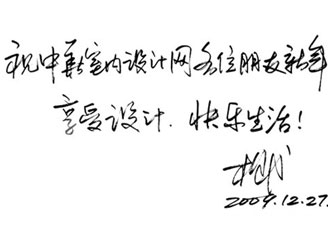 祝中华室内设计网各位朋友新年
享受设计.快乐生活!
2009.12.27.